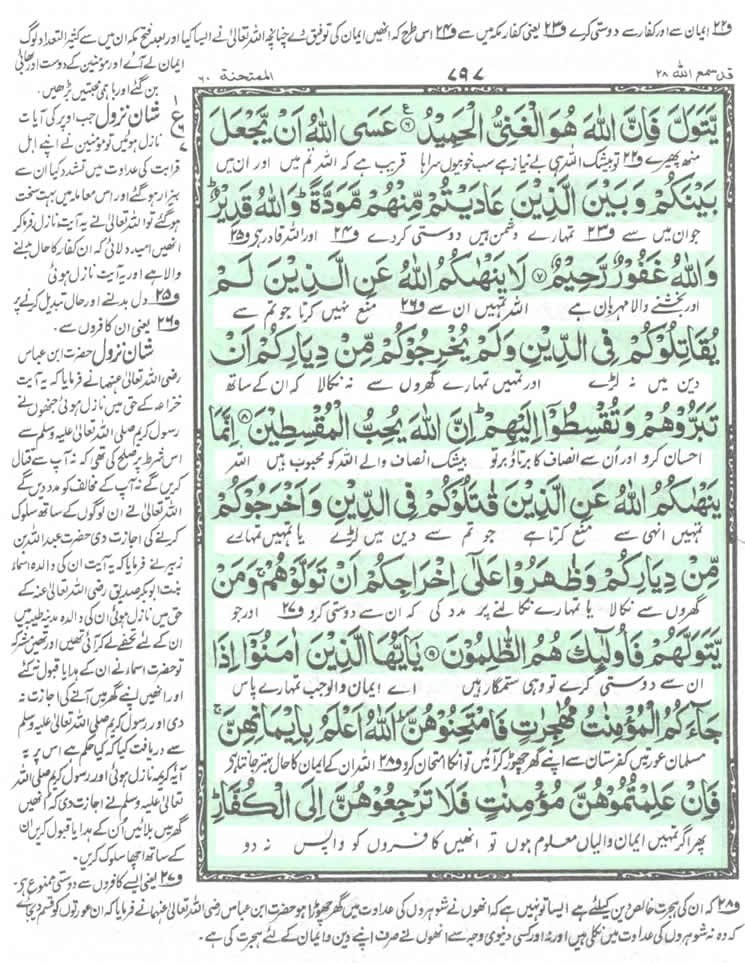 ف۲۲ ایمان سے اور کفار سے دوستی کرے ف۲۳ یعنی کفار مکہ میں سے ف۲۴ اس طرح کہ انھیں ایمان کی توفیق دے چنانچہ اللہ تعالیٰ نے ایسا کیا اور بعد فتح مکہ ان میں سے کثیر التعداد لوگ
ایمان لے آئے اور مؤمنین کے دوست اور بھائی
بن گئے اور باہمی محبتیں بڑھیں۔
قد سمع اللہ ۲۸
۷۹۷
الممتحنة ۶۰
يَّتَوَلَّ فَاِنَّ اللّٰهَ هُوَ الْغَنِيُّ الْحَمِيْدُ ۶ عَسَى اللّٰهُ اَنْ يَّجْعَلَ
منھ پھیرے ف۲۲ تو بیشک اللہ ہی بے نیاز ہے سب خوبیوں سراہا قریب ہے کہ اللہ تم میں اور ان میں
بَيْنَكُمْ وَبَيْنَ الَّذِيْنَ عَادَيْتُمْ مِّنْهُمْ مَّوَدَّةً ؕ وَاللّٰهُ قَدِيْرٌ ؕ
جو ان میں سے ف۲۳ تمہارے دشمن ہیں دوستی کردے ف۲۴ اور اللہ قادر ہے ف۲۵
وَاللّٰهُ غَفُوْرٌ رَّحِيْمٌ ۷ لَا يَنْهٰىكُمُ اللّٰهُ عَنِ الَّذِيْنَ لَمْ
اور بخشنے والا مہربان ہے اللہ تمہیں ان سے ف۲۶ منع نہیں کرتا جو تم سے
يُقَاتِلُوْكُمْ فِي الدِّيْنِ وَلَمْ يُخْرِجُوْكُمْ مِّنْ دِيَارِكُمْ اَنْ
دین میں نہ لڑے اور تمہیں تمہارے گھروں سے نہ نکالا کہ ان کے ساتھ
تَبَرُّوْهُمْ وَتُقْسِطُوْۤا اِلَيْهِمْ ؕ اِنَّ اللّٰهَ يُحِبُّ الْمُقْسِطِيْنَ ۸ اِنَّمَا
احسان کرو اور اُن سے انصاف کا برتاؤ برتو بیشک انصاف والے اللہ کو محبوب ہیں اللہ
يَنْهٰىكُمُ اللّٰهُ عَنِ الَّذِيْنَ قٰتَلُوْكُمْ فِي الدِّيْنِ وَاَخْرَجُوْكُمْ
تمہیں انہی سے منع کرتا ہے جو تم سے دین میں لڑے یا تمہیں تمہارے
مِّنْ دِيَارِكُمْ وَظٰهَرُوْا عَلٰۤى اِخْرَاجِكُمْ اَنْ تَوَلَّوْهُمْ ۚ وَمَنْ
گھروں سے نکالا یا تمہارے نکالنے پر مدد کی کہ ان سے دوستی کرو ف۲۷ اور جو
يَّتَوَلَّهُمْ فَاُولٰٓئِكَ هُمُ الظّٰلِمُوْنَ ۹ يٰۤاَيُّهَا الَّذِيْنَ اٰمَنُوْۤا اِذَا
ان سے دوستی کرے تو وہی ستمگار ہیں اے ایمان والو جب تمہارے پاس
جَآءَكُمُ الْمُؤْمِنٰتُ مُهٰجِرٰتٍ فَامْتَحِنُوْهُنَّ ؕ اَللّٰهُ اَعْلَمُ بِاِيْمَانِهِنَّ ۚ
مسلمان عورتیں کفرستان سے اپنے گھر چھوڑ کر آئیں تو انکا امتحان کرو ف۲۸ اللہ ان کے ایمان کا حال بہتر جانتا ہے
فَاِنْ عَلِمْتُمُوْهُنَّ مُؤْمِنٰتٍ فَلَا تَرْجِعُوْهُنَّ اِلَى الْكُفَّارِ ؕ
پھر اگر تمہیں ایمان والیاں معلوم ہوں تو انھیں کافروں کو واپس نہ دو
شان نزول جب اوپر کی آیات
نازل ہوئیں تو مؤمنین نے اپنے اہل
قرابت کی عداوت میں تشدد کیا ان سے
بیزار ہو گئے اور اس معاملہ میں بہت سخت
ہو گئے تو اللہ تعالیٰ نے یہ آیت نازل فرما کر
انھیں امید دلائی کہ ان کفار کا حال بدلنے
والا ہے اور یہ آیت نازل ہوئی
ف۲۵ دل بدلنے اور حال تبدیل کرنے پر
ف۲۶ یعنی ان کافروں سے۔
شان نزول حضرت ابن عباس
رضی اللہ تعالیٰ عنہما نے فرمایا کہ یہ آیت
خزاعہ کے حق میں نازل ہوئی جنھوں نے
رسول کریم صلی اللہ تعالیٰ علیہ وسلم سے
اس شرط پر صلح کی تھی کہ نہ آپ سے قتال
کریں گے نہ آپ کے مخالف کو مدد دیں گے
اللہ تعالیٰ نے ان لوگوں کے ساتھ سلوک
کرنے کی اجازت دی حضرت عبداللہ بن
زبیر نے فرمایا کہ یہ آیت ان کی والدہ اسماء
بنت ابوبکر صدیق رضی اللہ تعالیٰ عنہ کے
حق میں نازل ہوئی ان کی والدہ مدینہ طیبہ میں
ان کے لئے تحفے لے کر آئی تھیں اور تھیں مشرکہ
تو حضرت اسماء نے ان کے ہدایا قبول نہ کئے
اور انھیں اپنے گھر میں آنے کی اجازت نہ
دی اور رسول کریم صلی اللہ تعالیٰ علیہ وسلم
سے دریافت کیا کہ کیا حکم ہے اس پر یہ
آیہ کریمہ نازل ہوئی اور رسول کریم صلی اللہ
تعالیٰ علیہ وسلم نے اجازت دی کہ انھیں
گھر میں بلائیں اُن کے ہدایا قبول کریں ان
کے ساتھ اچھا سلوک کریں۔
ف۲۷ یعنی ایسے کافروں سے دوستی ممنوع ہے۔
ف۲۸ کہ ان کی ہجرت خالص دین کیلئے ہے ایسا تو نہیں ہے کہ انھوں نے شوہروں کی عداوت میں گھر چھوڑا ہو حضرت ابن عباس رضی اللہ تعالیٰ عنہما نے فرمایا کہ ان عورتوں کو قسم دیجائے
کہ وہ نہ شوہروں کی عداوت میں نکلی ہیں اور نہ اور کسی دنیوی وجہ سے انھوں نے صرف اپنے دین و ایمان کے لئے ہجرت کی ہے۔